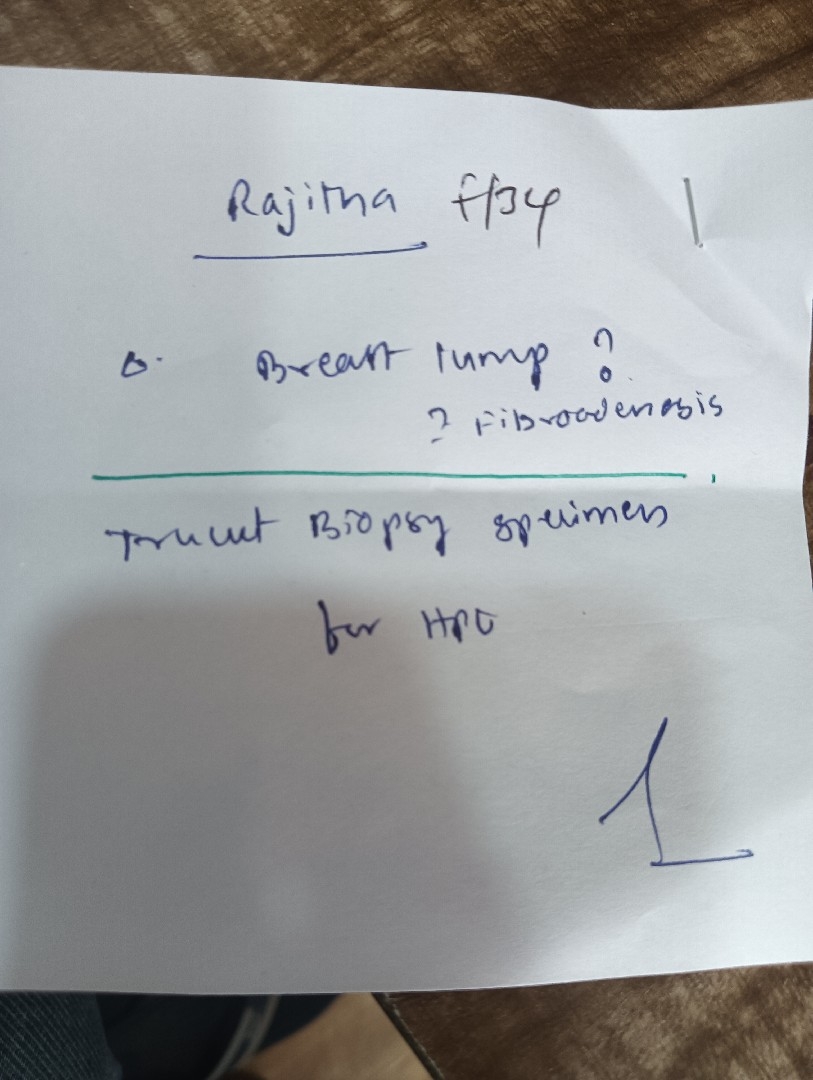 Rajitha f/34
Δ. Breast lump ?
? Fibroadenosis
Trucut Biopsy specimen
for HPE
1